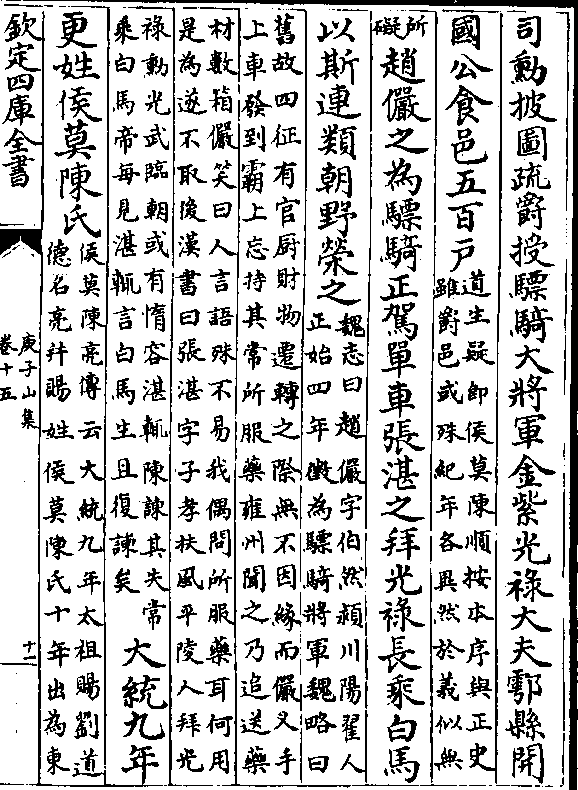 司勳披圖疏爵授驃騎大將軍金紫光祿大夫鄠縣開
國公食邑五百戶道生疑即侯莫陳順按本序與正史
雖爵邑或殊紀年各異然於義似無
所
礙趙儼之為驃騎正駕單車張湛之拜光祿長乘白馬
以斯連類朝野榮之魏志曰趙儼字伯然潁川陽翟人
正始四年徵為驃騎將軍魏略曰
舊故四征有官厨財物遷轉之際無不因緣而儼乂手
上車發到霸上忘持其常所服藥雍州聞之乃追送藥
材數箱儼笑曰人言語殊不易我偶問所服藥耳何用
是為遂不取後漢書曰張湛字子孝扶風平陵人拜光
祿勳光武臨朝或有惰容湛輒陳諫其失常
乘白馬帝每見湛輒言白馬生且復諫矣大統九年
更姓侯莫陳氏侯莫陳亮傳云大統九年太祖賜劉道
德名亮幷賜姓侯莫陳氏十年出為東
欽定四庫全書
庾子山集
卷十五
十一